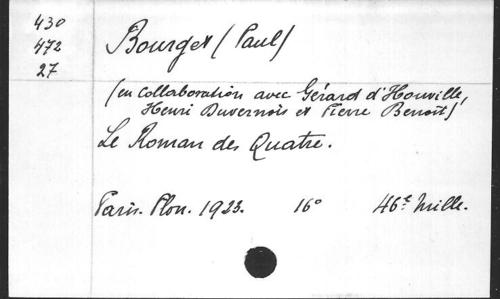 430
472
27
Bourget (Paul)
(en collaboration avec Gérard d'Houville,
Henri Duvernois et Pierre Benoit)
Le Roman des Quatre.
Paris. Plon. 1923. 16° 46e mille.